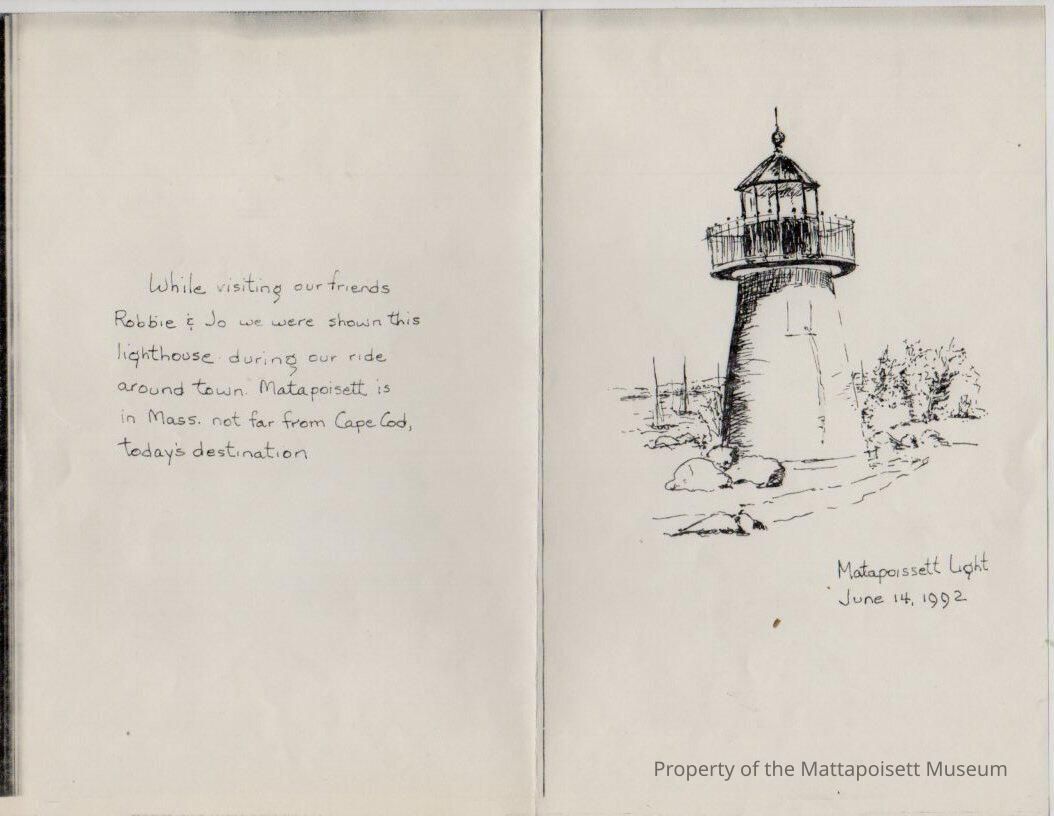 While visiting our friends
Robbie & Jo we were shown this
lighthouse during our ride
around town. Matapoisett is
in Mass. not far from Cape Cod,
today's destination
Matapoissett Light
June 14, 1992
Property of the Mattapoisett Museum